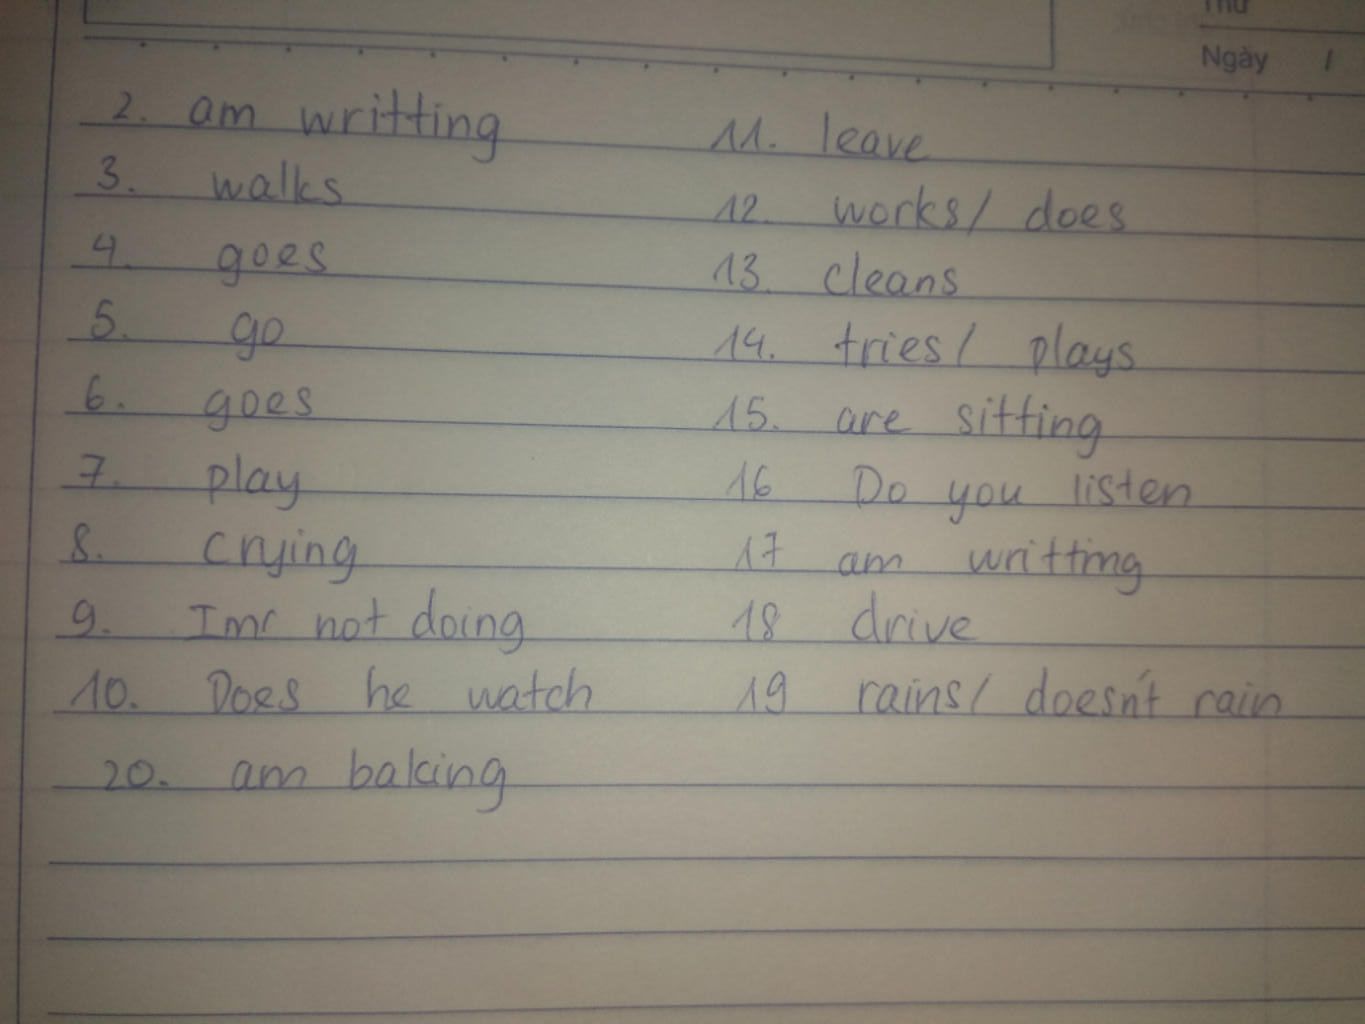 Thứ
Ngày /
2. am writting
3. walks
4. goes
5. go
6. goes
7. play
8. crying
9. Imr not doing
10. Does he watch
20. am baking
11. leave
12. works/ does
13. cleans
14. tries/ plays
15. are sitting
16 Do you listen
17 am writting
18 drive
19 rains/ doesn't rain